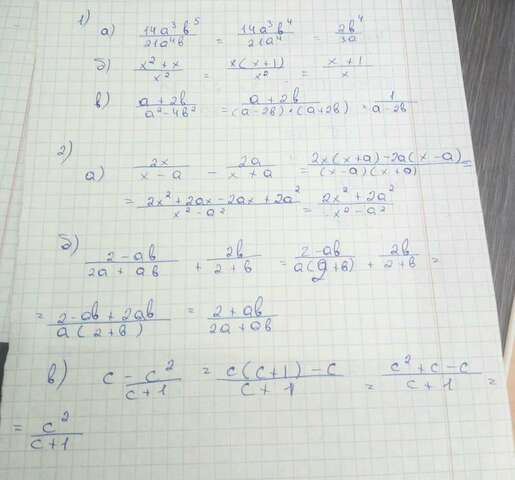 1) а) 14a³b⁵/21a⁴b = 14a³b⁴/21a⁴ = 2b⁴/3a
б) x² + x/x² = x(x+1)/x² = x+1/x
в) a + 2b/a² - 4b² = a + 2b/(a-2b)·(a+2b) = 1/a-2b
2)
а) 2x/x - a - 2a/x + a = 2x(x+a) - 2a(x-a)/(x-a)(x+a) =
= 2x² + 2ax - 2ax + 2a²/x² - a² = 2x² + 2a²/x² - a²
б) 2 - ab/2a + ab + 2b/2 + b = 2 - ab/a(2+b) + 2b/2+b =
= 2 - ab + 2ab/a(2+b) = 2 + ab/2a + ab
в) c - c²/c+1 = c(c+1) - c/c + 1 = c² + c - c/c + 1 =
= c²/c+1